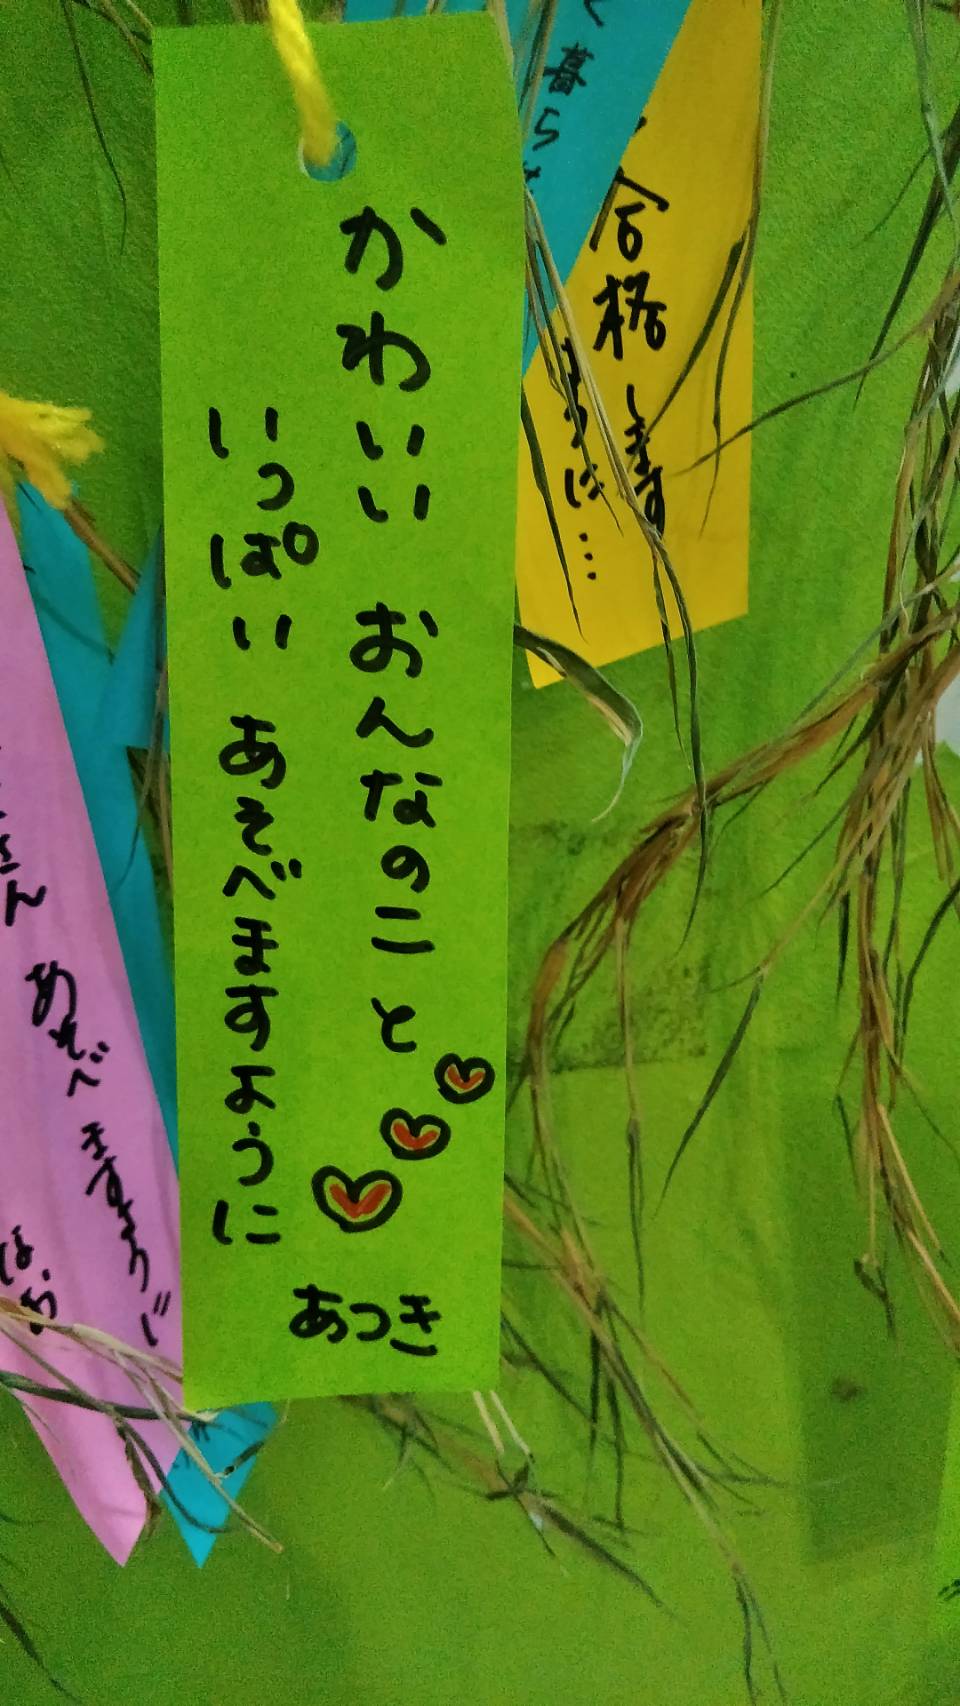 かわいい おんなのこ と
いっぱい あそべますように
あつき
合格します
ように…
暮らせ
さん あそべますように
なお